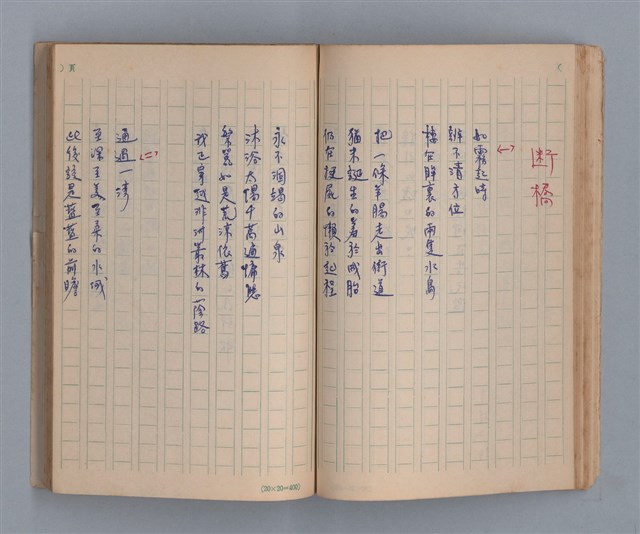 断橋
<一>
如霧起時
辨不清方位
棲在眸裏的兩隻水鳥
把一條羊腸走出街道
猶未誕生的羞於成胎
仍在襁褓的懶於起程
永不涸竭的山泉
沐浴太陽千萬遍慵懸
繁盛如是荒涼依舊
我已穿越非洲叢林的蔭路
<二>
通過一灣
至深至美至柔的水域
此後該是藍藍的前瞻
(20×20=400)
頁